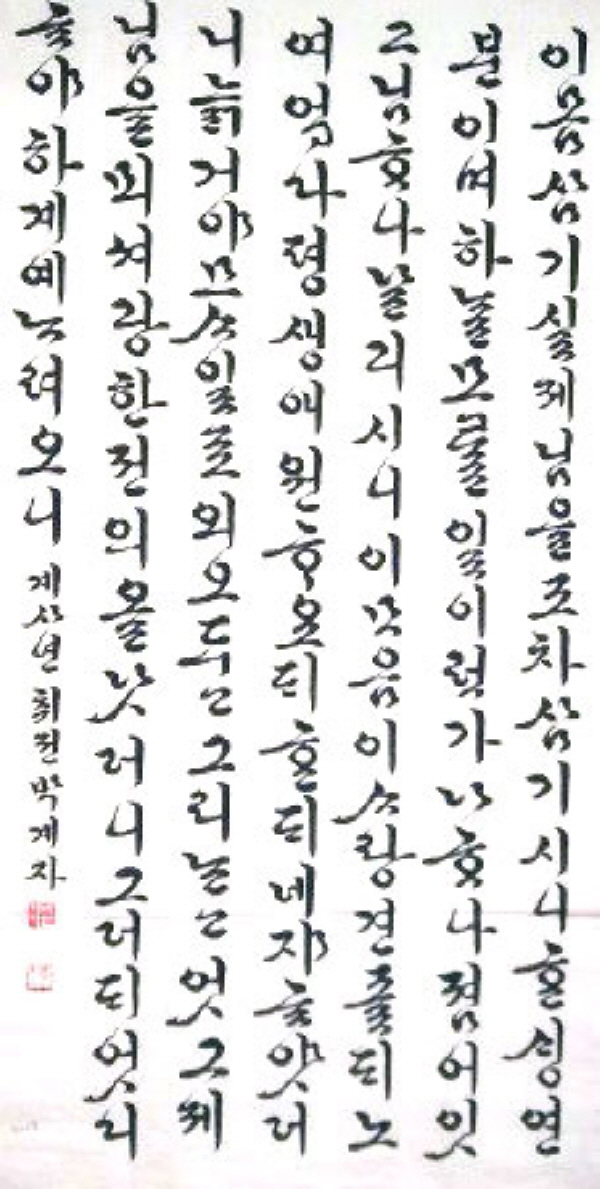 이몸삼기실제님을조차삼기시니ᄒᆞᆫᄉᆡᆼ연
분이며하ᄂᆞᆯ모ᄅᆞᆯ일이런가나ᄒᆞ나졈어잇
고님ᄒᆞ나날괴시니이ᄆᆞ음이ᄉᆞ랑견졸ᄃᆡ노
여업다평ᄉᆡᆼ애원ᄒᆞ요ᄃᆡᄒᆞᆫᄃᆡ녜쟈ᄒᆞ얏더
니늙거야므ᄉᆞ일로외오두고그리ᄂᆞᆫ고엇그제
님을뫼셔광한뎐의올낫더니그더ᄃᆡ엇디
ᄒᆞ야하계예ᄂᆞ려오니 계사년 휘전 박계자